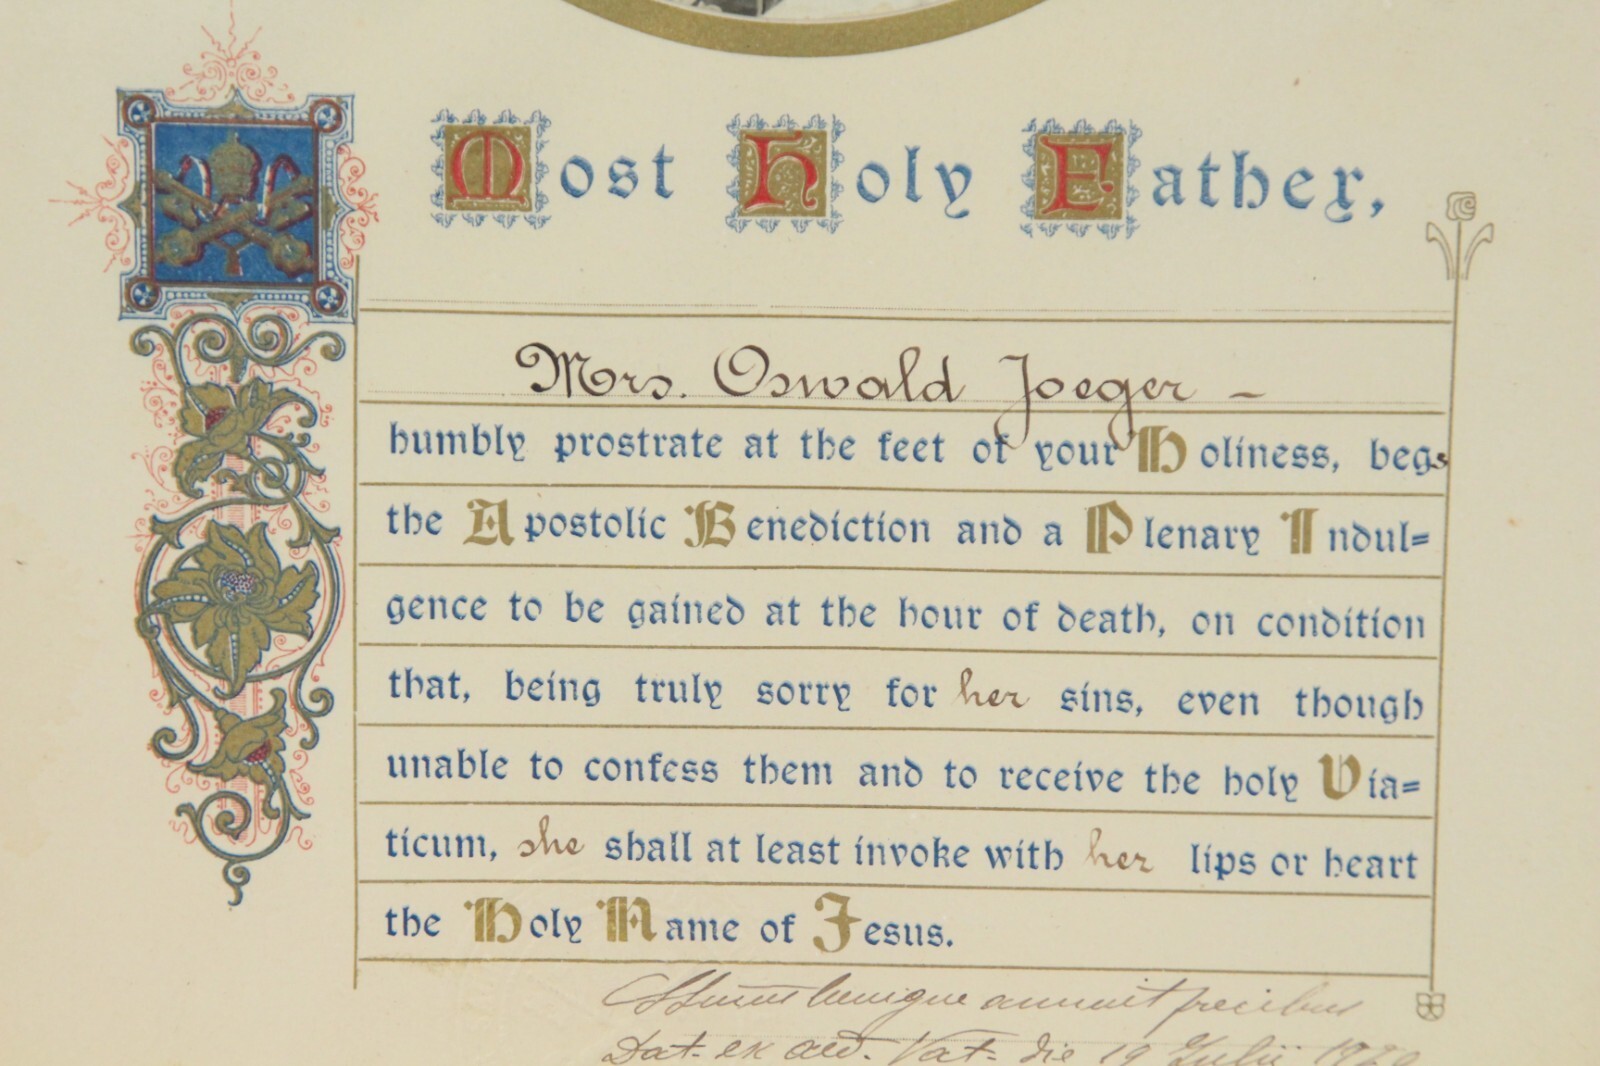 Most Holy Father,
Mrs. Oswald Jaeger -
humbly prostrate at the feet of your Holiness, begs
the Apostolic Benediction and a Plenary Indul=
gence to be gained at the hour of death, on condition
that, being truly sorry for her sins, even though
unable to confess them and to receive the holy Via=
ticum, she shall at least invoke with her lips or heart
the Holy Name of Jesus.
SSmus benigne annuit precibus
Dat. ex aed. Vat. die 19 Julii